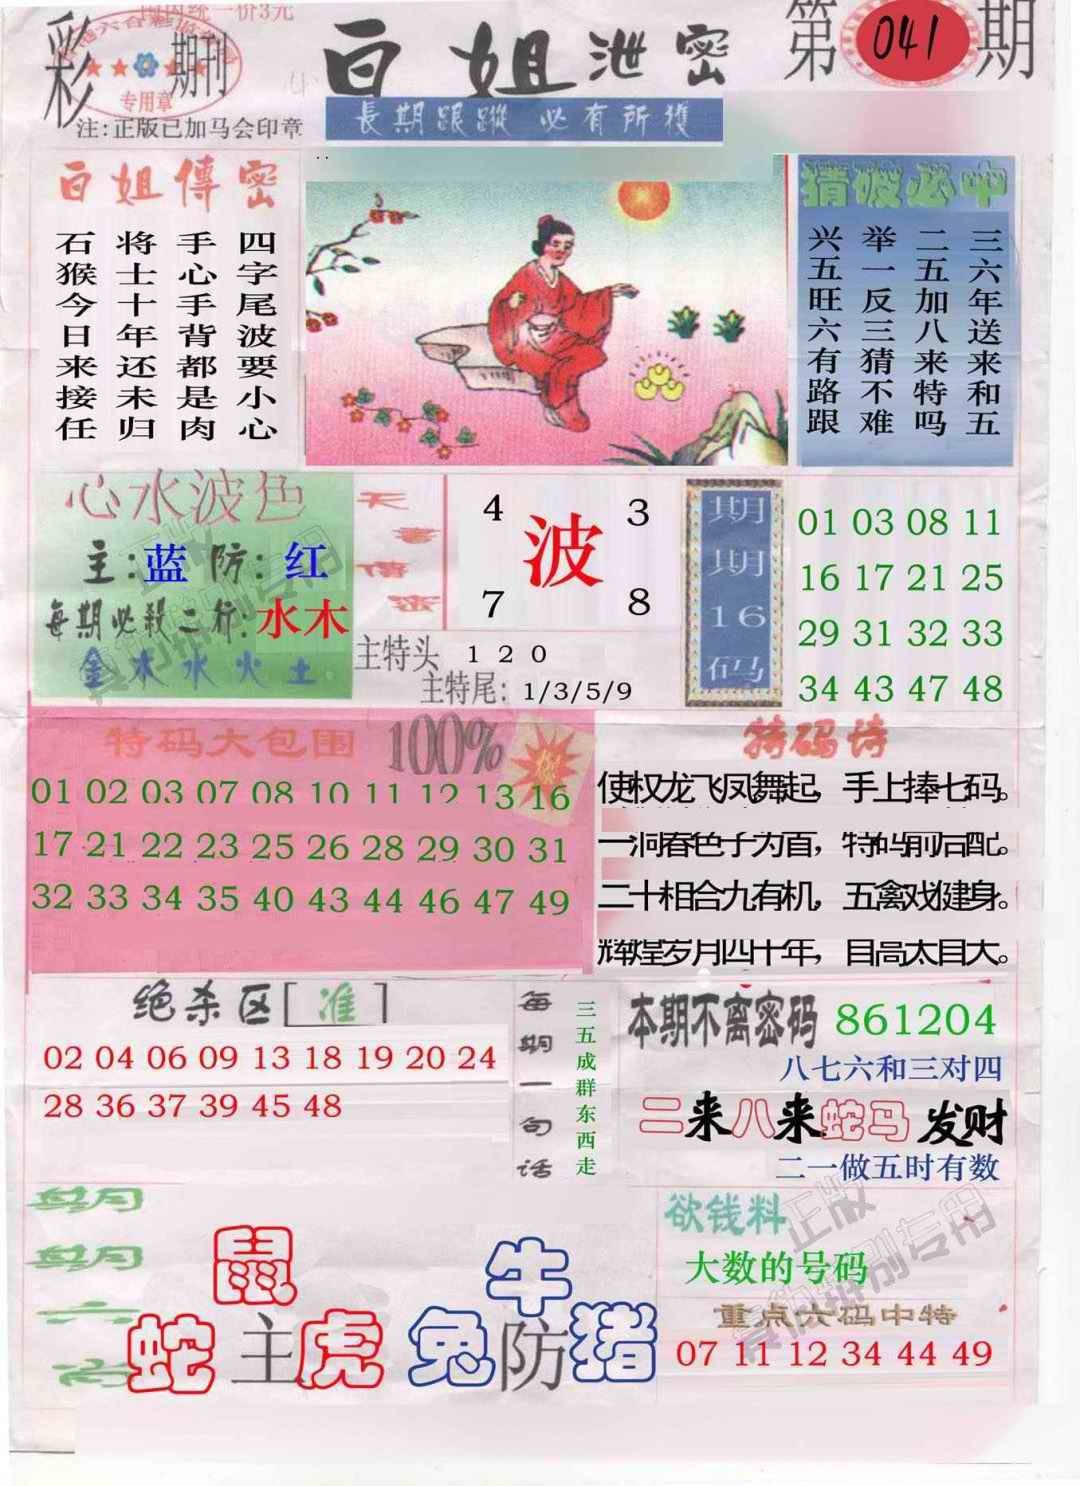 国内统一价3元
彩
期刊
专用章
注:正版已加马会印章
白姐泄密
長期跟蹤 必有所獲
第041期
白姐傳密
四字尾波要小心
手心手背都是肉
将士十年还未归
石猴今日来接任
猜破必中
三六年送来和五
二五加八来特吗
举一反三猜不难
兴五旺六有路跟
心水波色
主:蓝 防:红
每期必殺二行:水木
金木水火土
天書傳密
4 3
波
7 8
主特头 1 2 0
主特尾: 1/3/5/9
期期16码
01 03 08 11
16 17 21 25
29 31 32 33
34 43 47 48
特码大包围 100%
01 02 03 07 08 10 11 12 13 16
17 21 22 23 25 26 28 29 30 31
32 33 34 35 40 43 44 46 47 49
特码诗
使权龙飞凤舞起，手上捧七码。
一洞春色子为首，特码前后配。
二十相合九有机，五禽戏健身。
辉煌岁月四十年，目高太目大。
绝杀区[准]
02 04 06 09 13 18 19 20 24
28 36 37 39 45 48
每期一句话
三五成群东西走
本期不离密码 861204
八七六和三对四
二来八来蛇马发财
二一做五时有数
鼠
蛇主虎
牛
兔防猪
欲钱料
大数的号码
重点六码中特
07 11 12 34 44 49